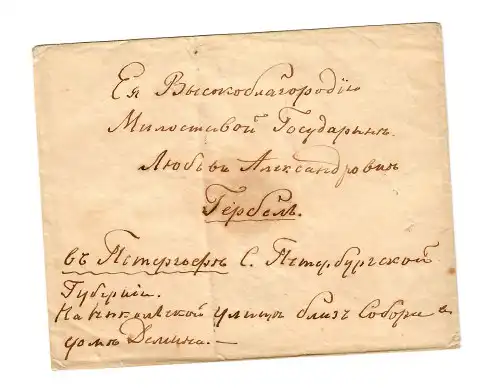 Ея Высокоблагородію
Милостивой Государынѣ
Любовѣ Александровнѣ
Гербель.
въ Петергофѣ С. Петербургской
Губерніи.
На улицѣ близъ Собора в
домѣ Демина. —